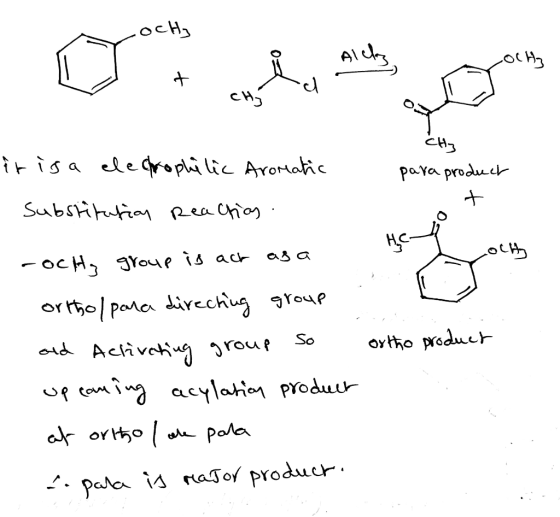 OCH3
+
O
CH3
Cl
AlCl3
OCH3
O
CH3
para product
+
O
H3C
OCH3
ortho product
it is a electrophilic Aromatic
Substitution Reaction.
- OCH3 group is act as a
ortho/para directing group
and Activating group so
up coming acylation product
at ortho / para
∴ para is major product.